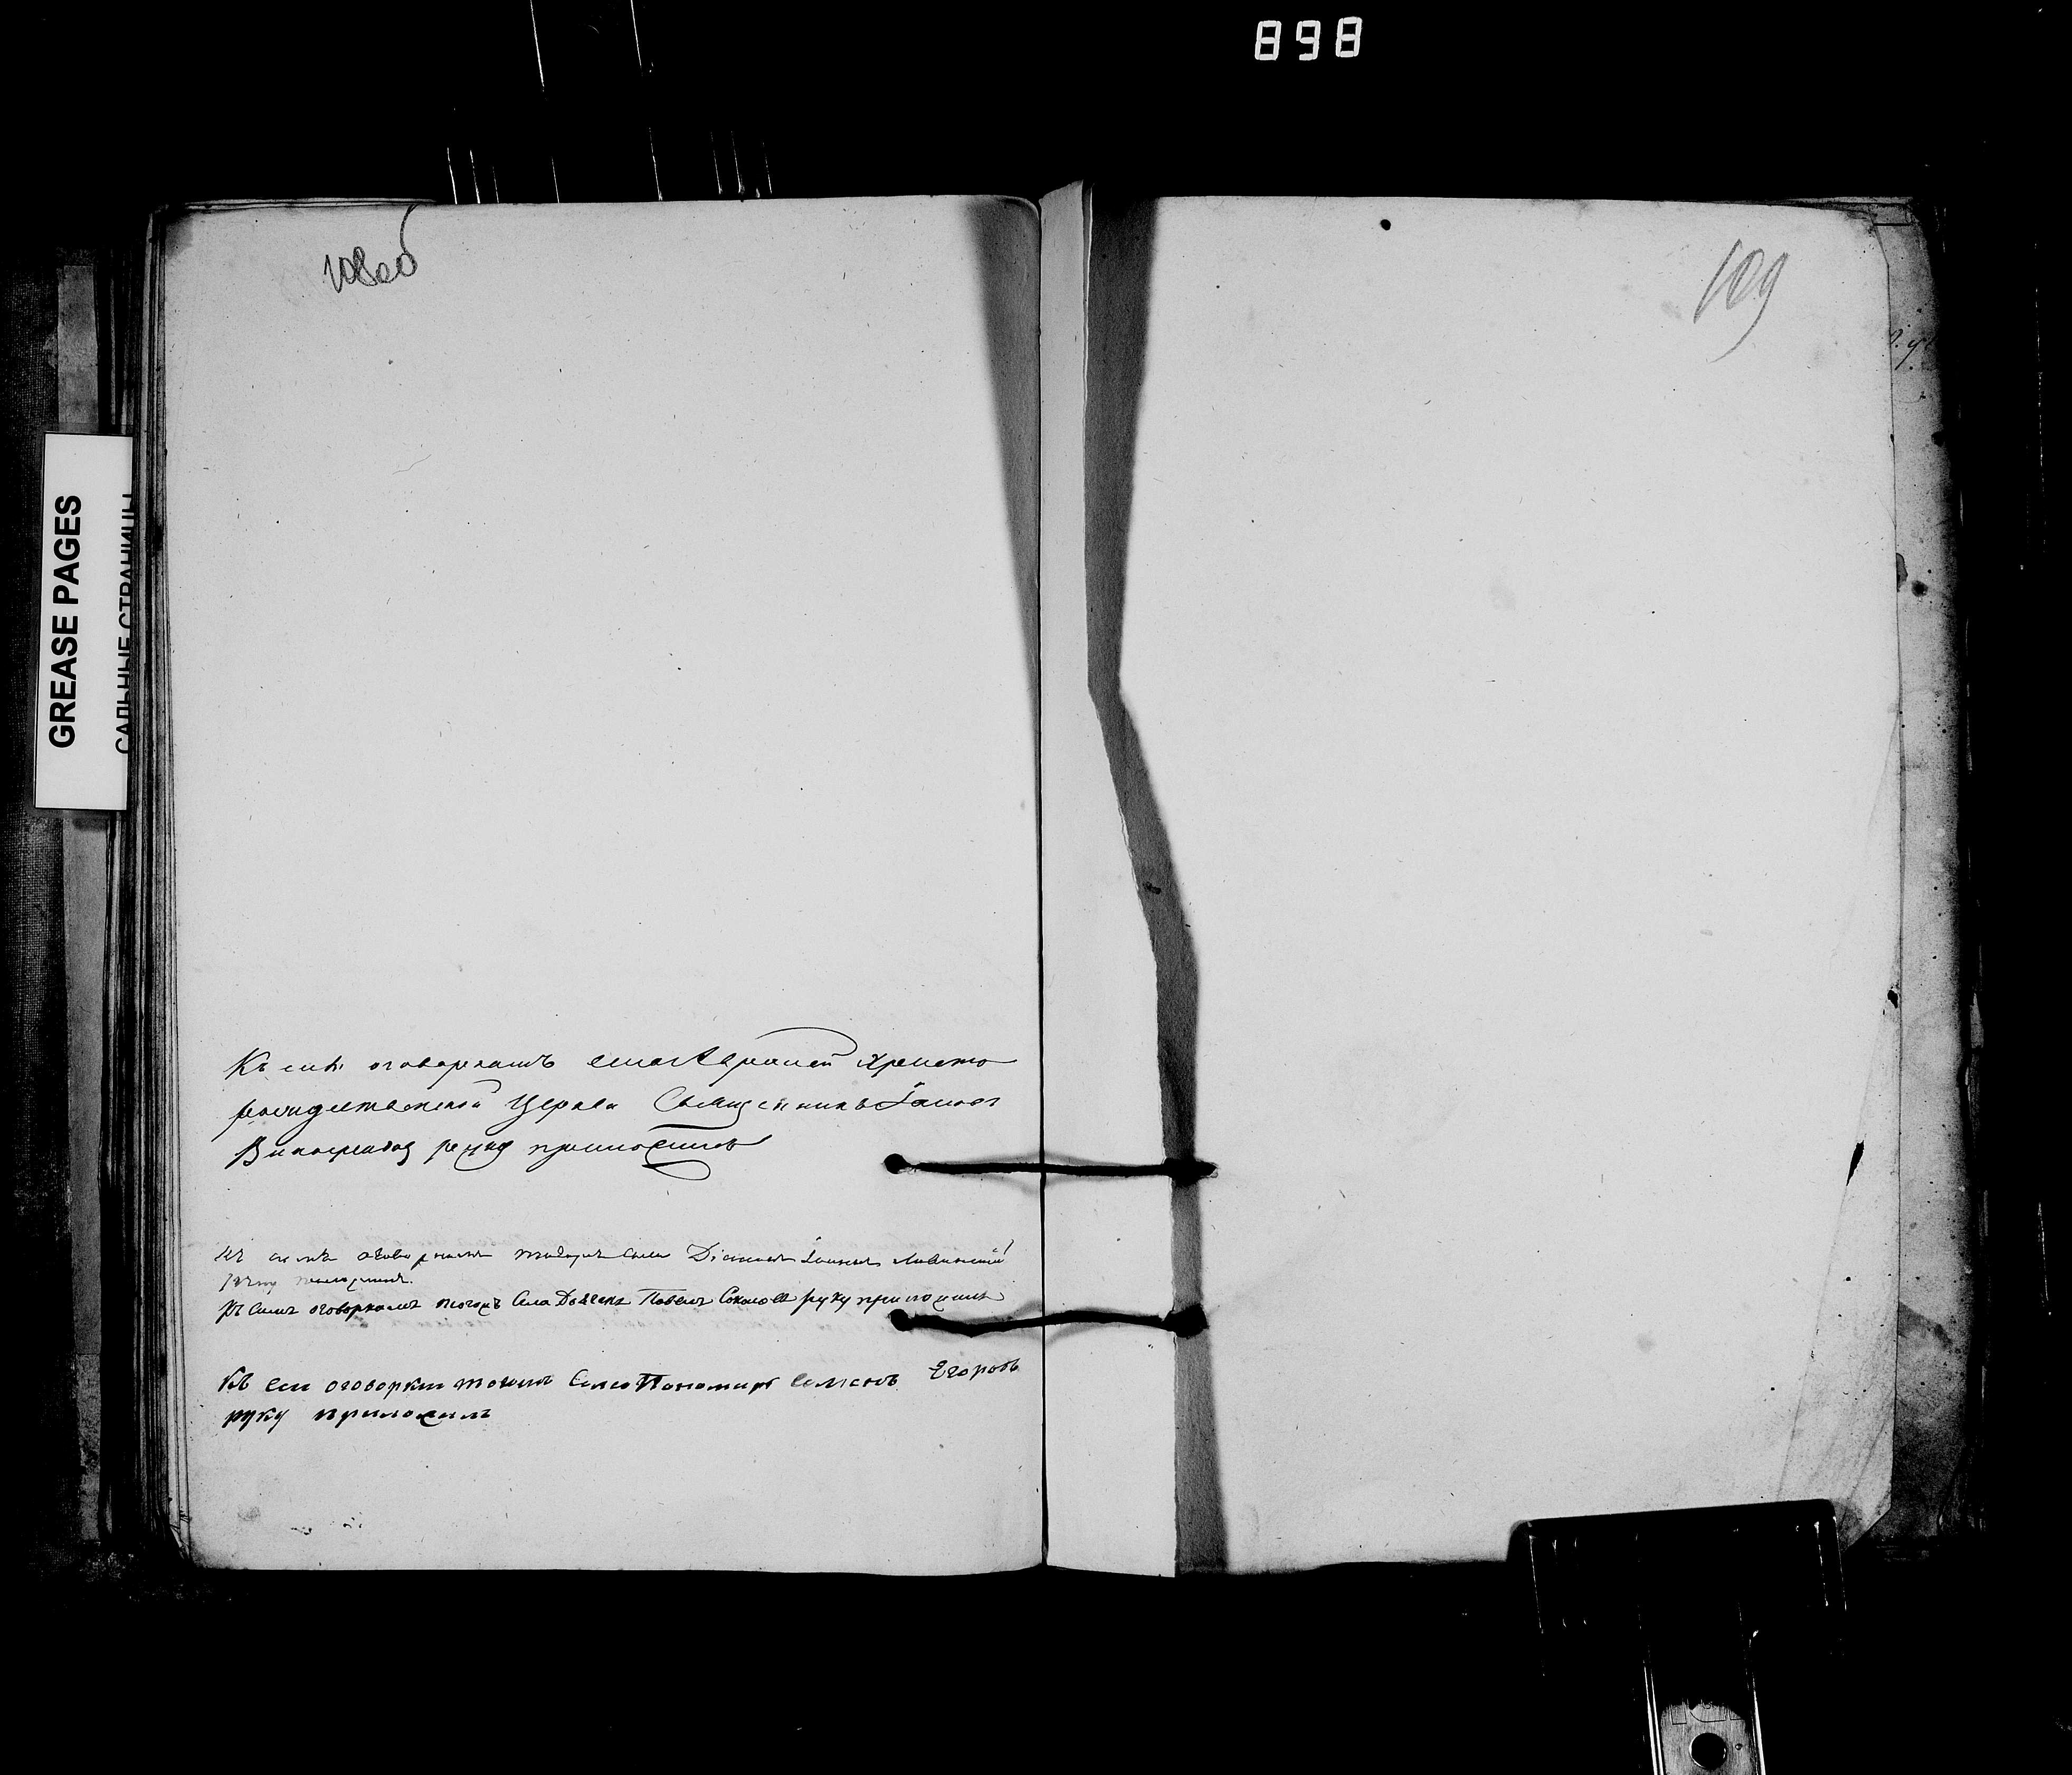 898
108об
109
GREASE PAGES
САЛЬНЫЕ СТРАНИЦЫ
Къ симъ оговоркамъ села Христо
рождественской Церкви Священникъ Іаковъ
Виноградов руку приложилъ
Къ симъ оговоркамъ тогожъ села Діаконъ Іоаннъ
руку приложилъ.
Къ симъ оговоркамъ тогожъ Села Дьячекъ Павелъ Соколовъ руку приложилъ
Къ сей оговорки тогожъ Села Пономарь Семенъ Егоровъ
руку приложилъ